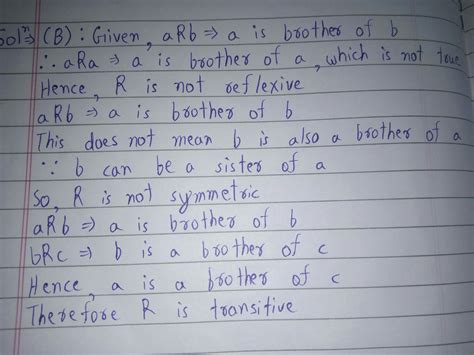 Solⁿ⇒ (B) : Given, aRb ⇒ a is brother of b
∴ aRa ⇒ a is brother of a, which is not true
Hence, R is not reflexive
aRb ⇒ a is brother of b
This does not mean b is also a brother of a
∵ b can be a sister of a
So, R is not symmetric
aRb ⇒ a is brother of b
bRc ⇒ b is a brother of c
Hence, a is a brother of c
Therefore R is transitive